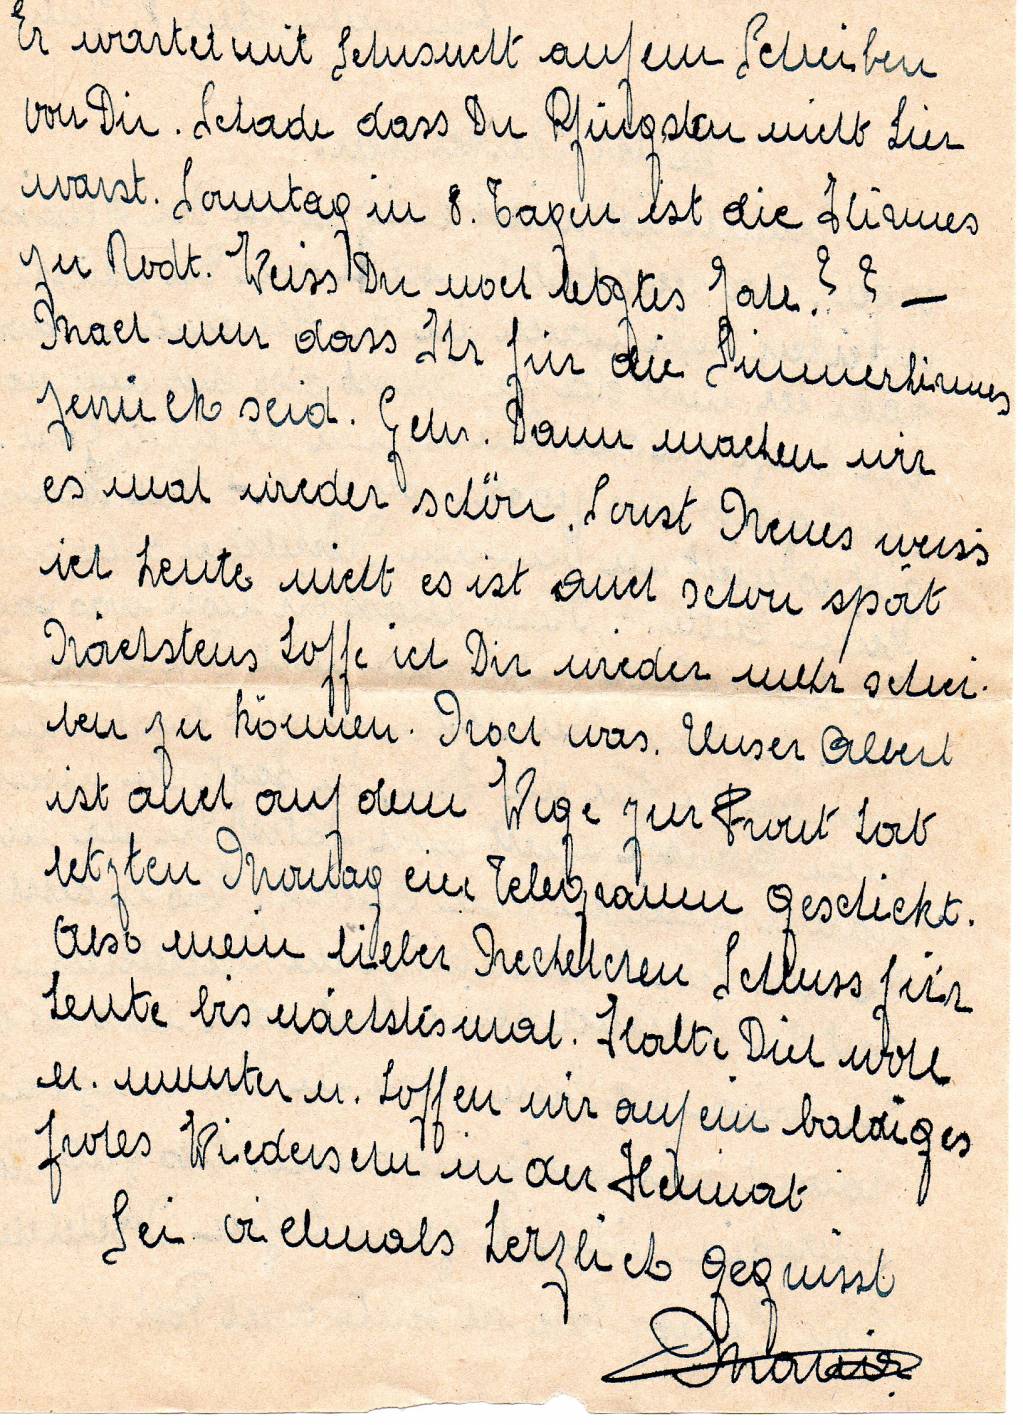 Er wartet mit Sehnsucht auf ein Schreiben
von Dir. Schade dass Du Pfingsten nicht hier
warst. Sonntag in 8. Tagen ist die Kirmes
zu Rodt. Weiss Du noch letztes Jahr. ? ? —
Mach nur dass Ihr für die Kirmes
zurück seid. Geln. Dann machen wir
es mal wieder schön. Sonst Neues weiss
ich heute nicht es ist auch schon spät
Nächstens hoffe ich Dir wieder mehr schrei-
ben zu können. Noch was. Unser Albert
ist auch auf dem Wege zur Front hat
letzten Montag ein Telegramm geschickt.
Also mein lieber Schluss für
heute bis nächstesmal. Halte Dich wohl
u. munter u. hoffen wir auf ein baldiges
frohes Wiedersehn in der Heimat
Sei vielmals herzlich gegrüsst